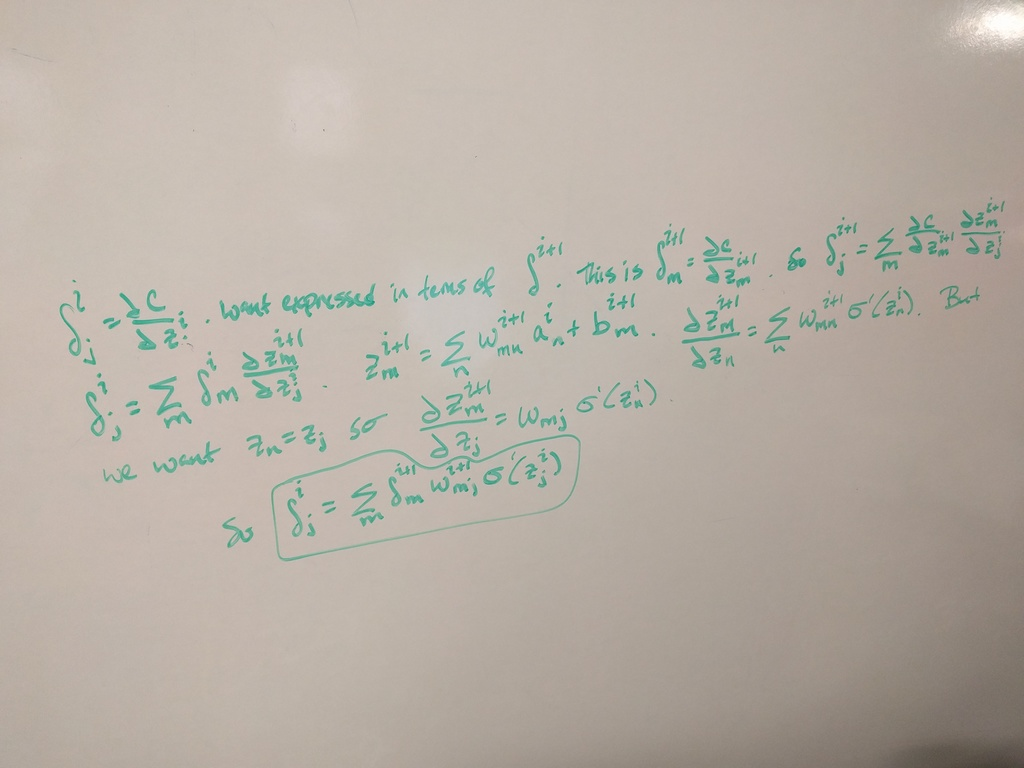 δ_j^i = ∂C/∂z_j^i. Want expressed in terms of δ^{i+1}. This is δ_m^{i+1} = ∂C/∂z_m^{i+1}. So δ_j^{i+1} = Σ_m ∂C/∂z_m^{i+1} ∂z_m^{i+1}/∂z_j^i
δ_j^i = Σ_m δ_m^i ∂z_m^{i+1}/∂z_j^i. z_m^{i+1} = Σ_n w_{mn}^{i+1} a_n^i + b_m^{i+1}. ∂z_m^{i+1}/∂z_n = Σ_n w_{mn}^{i+1} σ'(z_n^i). But
we want z_n = z_j so ∂z_m^{i+1}/∂z_j = w_{mj} σ'(z_n^i).
So δ_j^i = Σ_m δ_m^{i+1} w_{mj}^{i+1} σ'(z_j^i)